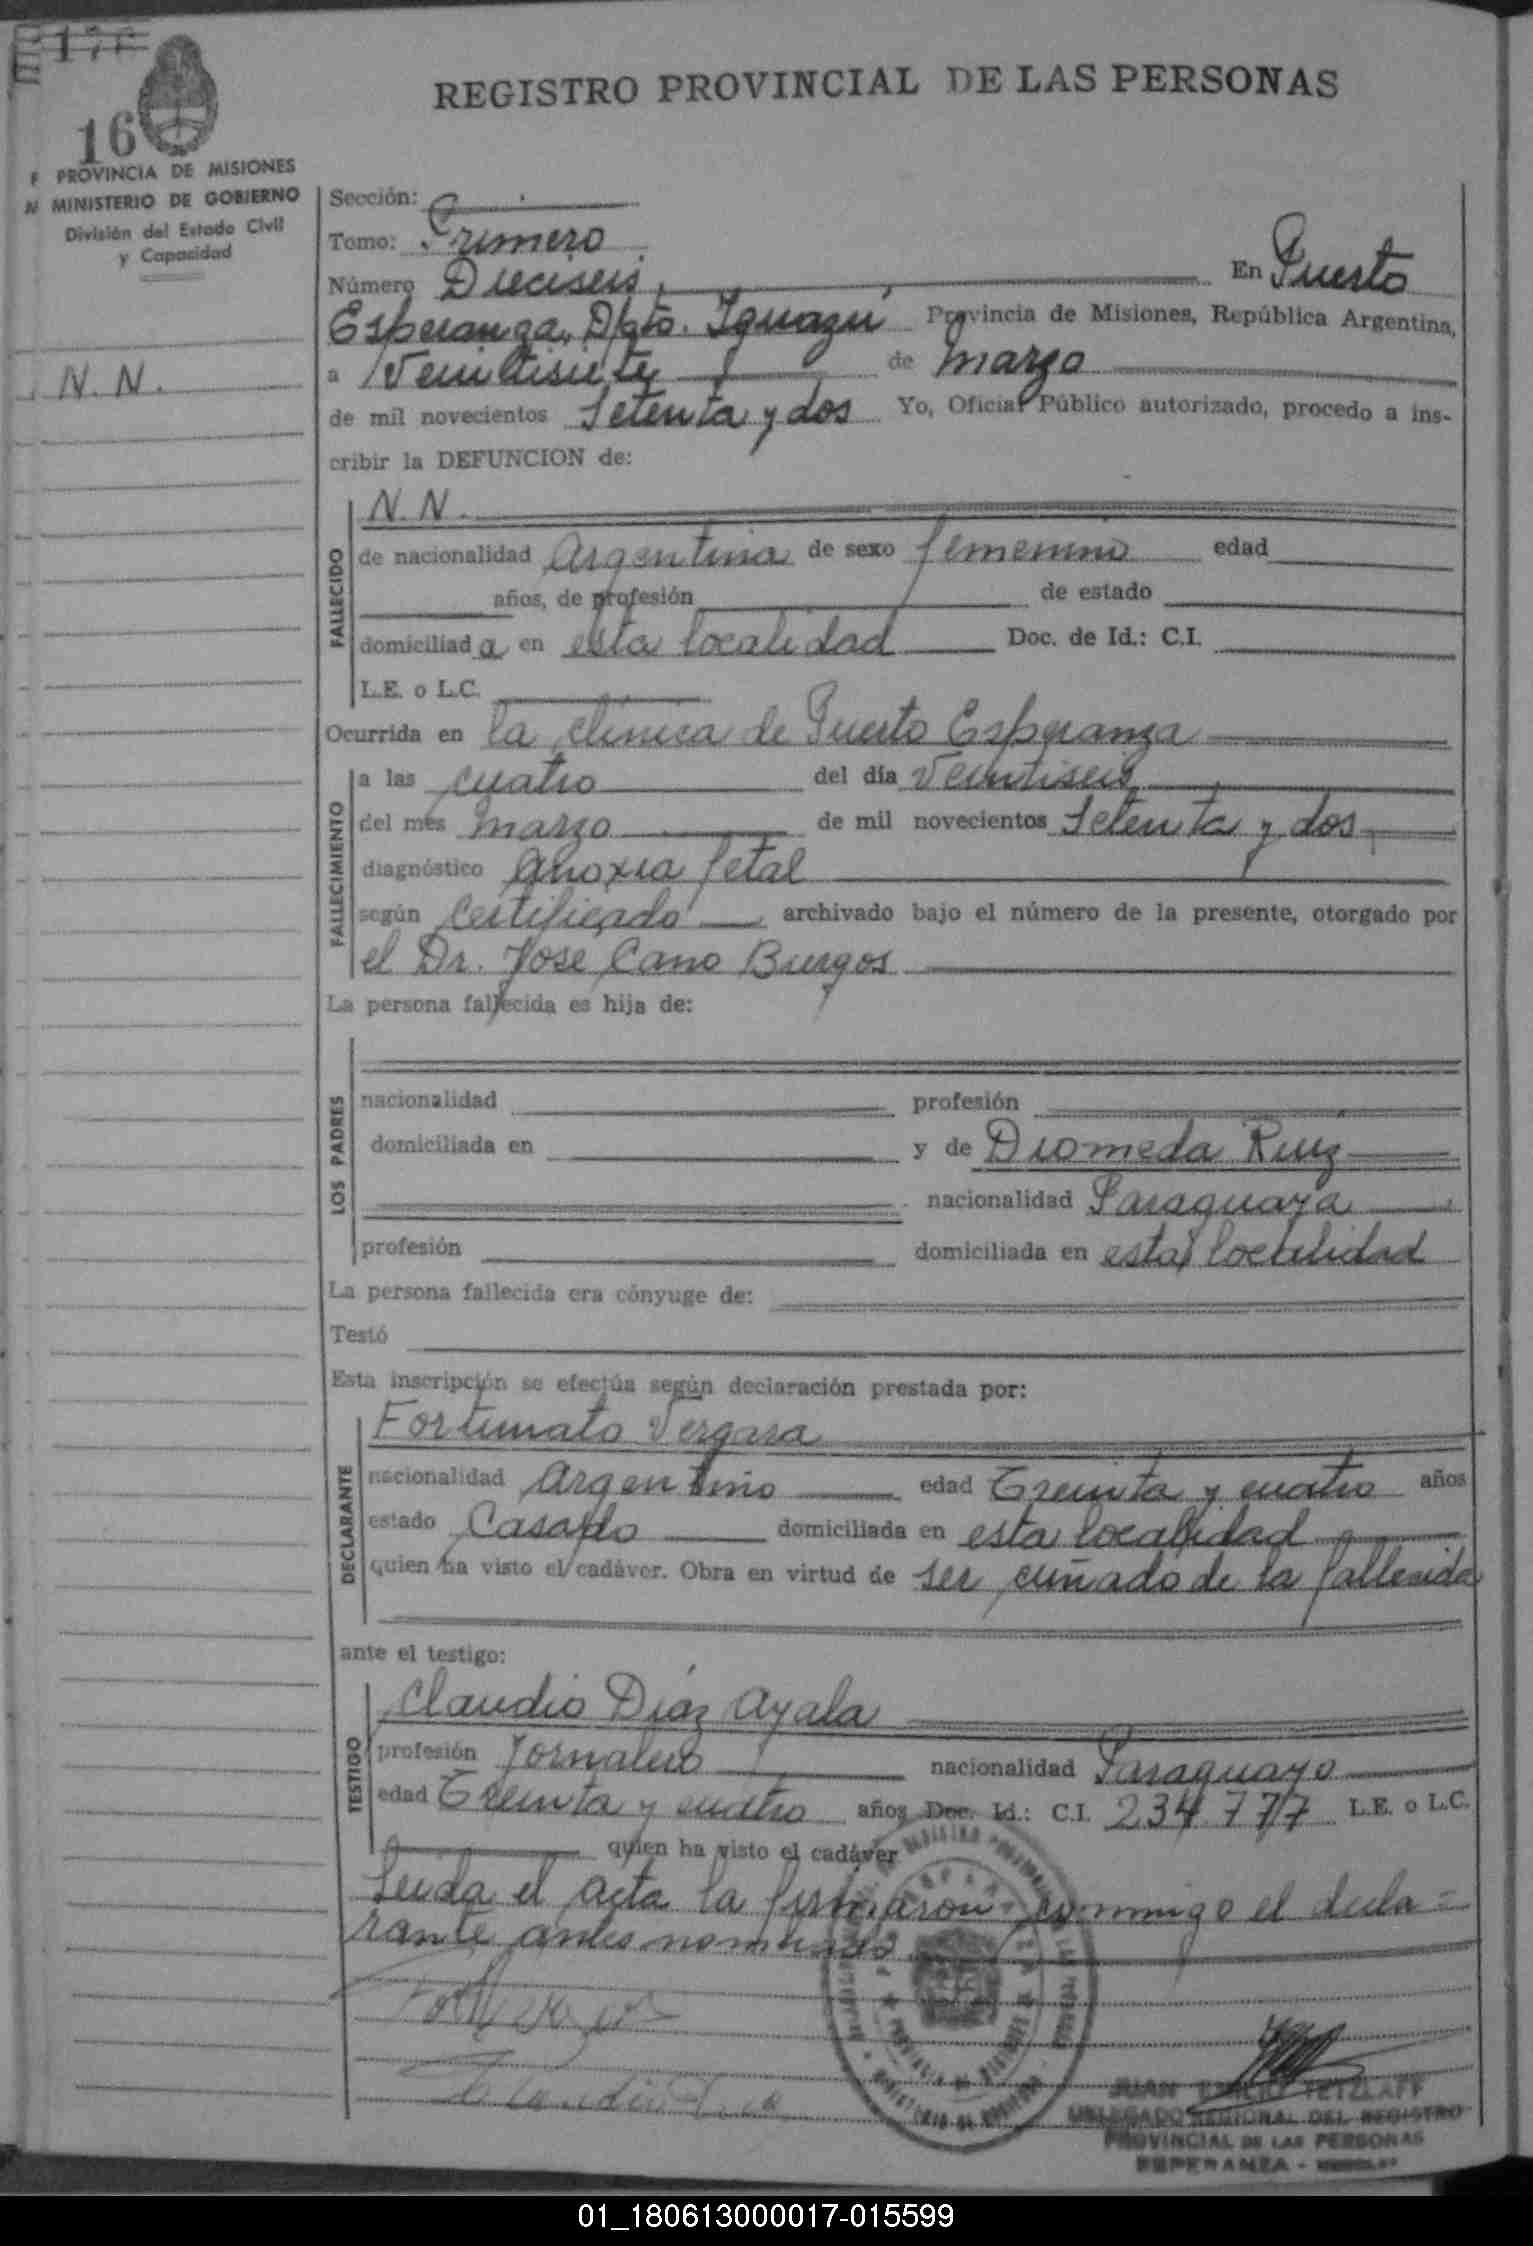 REGISTRO PROVINCIAL DE LAS PERSONAS
16
PROVINCIA DE MISIONES
MINISTERIO DE GOBIERNO
División del Estado Civil
y Capacidad
N.N.
Sección:
Tomo: Primero
Número Dieciseis, En Puerto
Esperanza, Dpto. Iguazú Provincia de Misiones, República Argentina,
a Veintisiete de marzo
de mil novecientos Setenta y dos Yo, Oficial Público autorizado, procedo a ins-
cribir la DEFUNCION de:
FALLECIDO
N.N.
de nacionalidad Argentina de sexo femenino edad
años, de profesión de estado
domiciliada en esta localidad Doc. de Id.: C.I.
L.E. o L.C.
Ocurrida en la clínica de Puerto Esperanza
FALLECIMIENTO
a las cuatro del día veintiseis
del mes marzo de mil novecientos Setenta y dos
diagnóstico Anoxia fetal
según certificado archivado bajo el número de la presente, otorgado por
el Dr. Jose Cano Burgos
La persona fallecida es hija de:
LOS PADRES
nacionalidad profesión
domiciliada en y de Diomeda Ruiz
nacionalidad Paraguaya
profesión domiciliada en esta localidad
La persona fallecida era cónyuge de:
Testó
Esta inscripción se efectúa según declaración prestada por:
DECLARANTE
Fortunato Vergara
nacionalidad Argentino edad Treinta y cuatro años
estado Casado domiciliada en esta localidad
quien ha visto el cadáver. Obra en virtud de ser cuñado de la fallecida
ante el testigo:
TESTIGO
Claudio Díaz Ayala
profesión Jornalero nacionalidad Paraguayo
edad Treinta y cuatro años Doc. Id.: C.I. 234.777 L.E. o L.C.
quien ha visto el cadáver
Leida el acta la firmaron conmigo el decla=
rante antes nombrado
JUAN EMILIO TETZLAFF
DELEGADO REGIONAL DEL REGISTRO
PROVINCIAL DE LAS PERSONAS
ESPERANZA - MISIONES
01_180613000017-015599